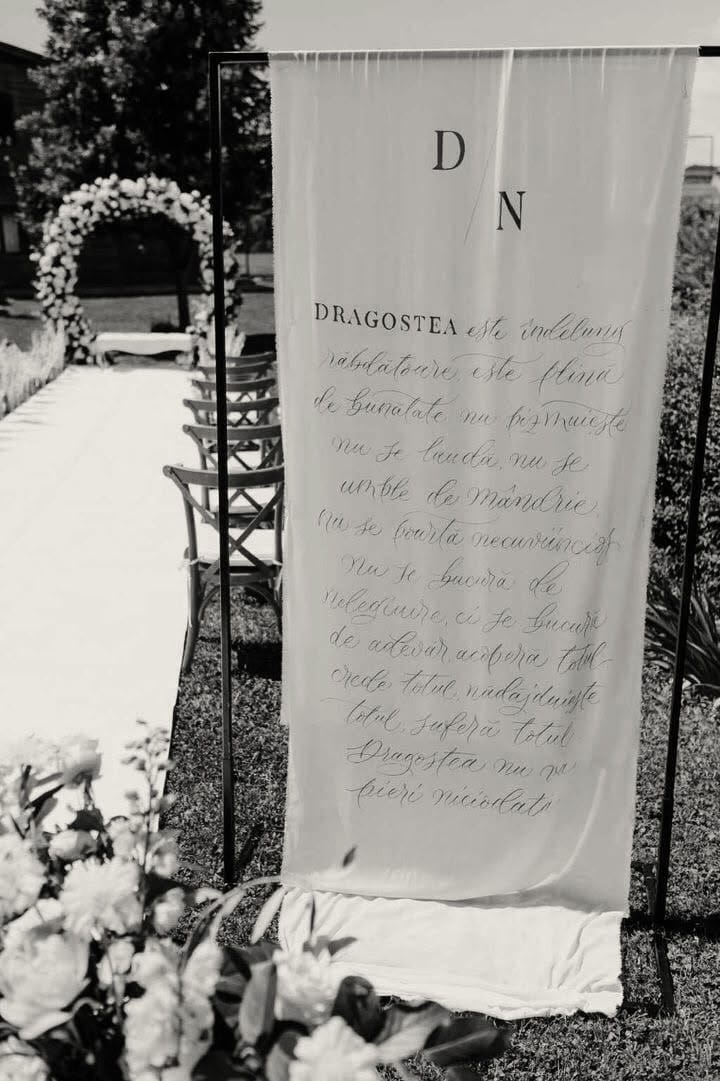 D
N
DRAGOSTEA este îndelung
răbdătoare, este plină
de bunătate nu pizmuiește
nu se laudă, nu se
umble de mândrie,
nu se poartă necuviincios
nu se bucură de
nelegiuire, ci se bucură
de adevăr, acoperă totul
crede totul, nădăjduiește
totul, suferă totul
Dragostea nu va
pieri niciodată